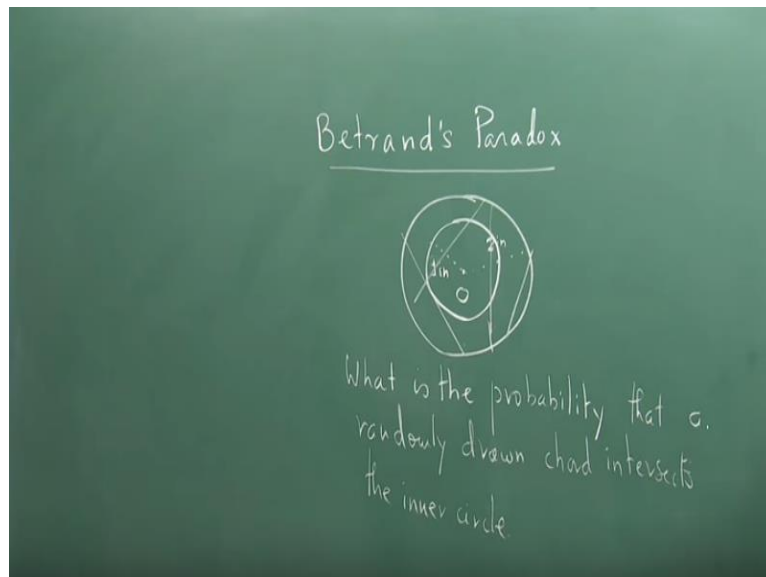 Betrand's Paradox
2in
1in
O
What is the probability that a
randouly drawn chord intersects
the inner circle.